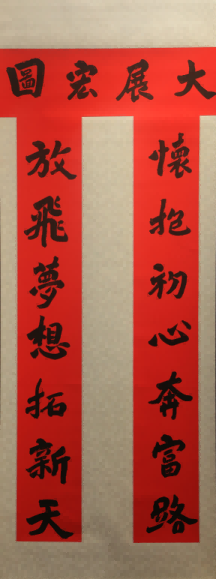 大展宏圖
懷抱初心奔富路
放飛夢想拓新天